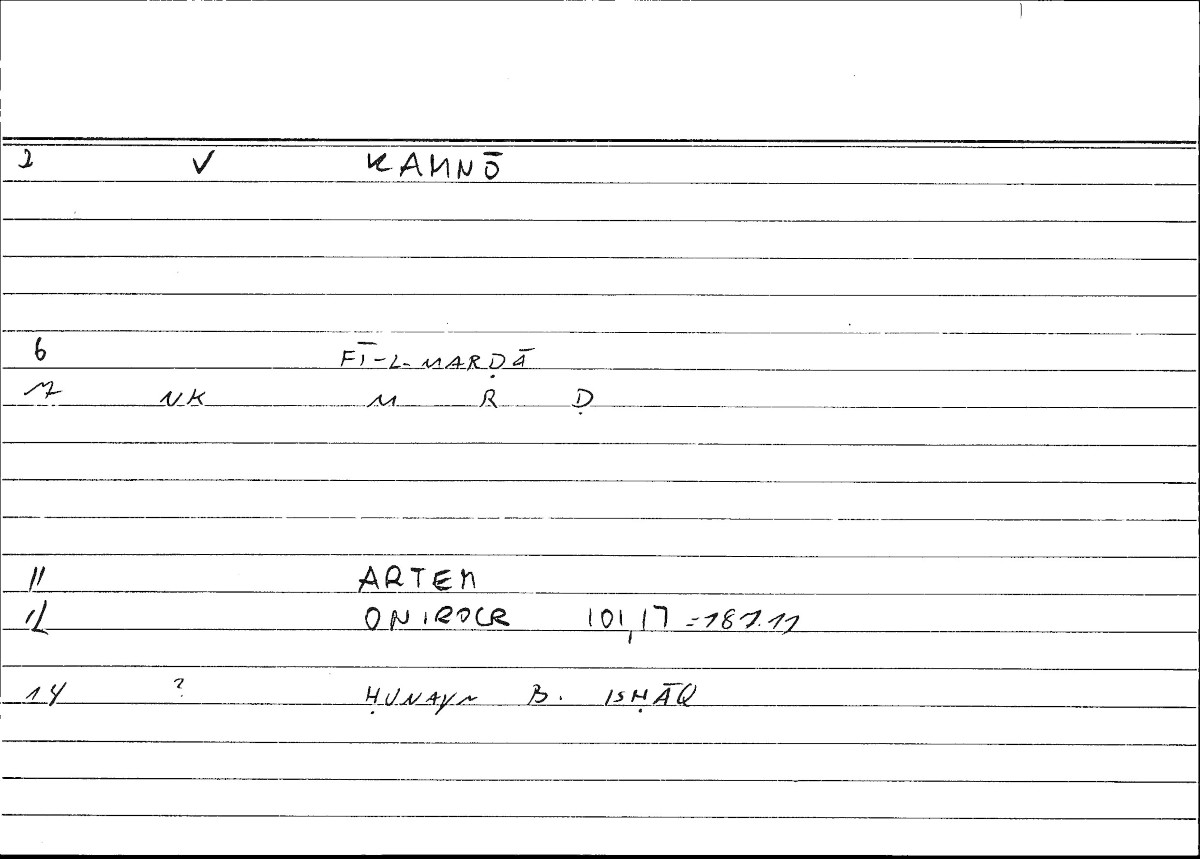 2 V KAMNŌ
6 FĪ-L-MARḌĀ
7 NK M R Ḍ
11 ARTEM
12 ONIROCR 101,17 = 187.11
14 ? ḤUNAYN B. ISḤĀQ